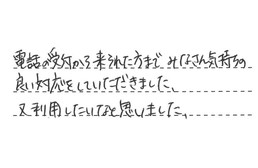 電話の受付から来られた方まで みなさん気持ちの
良い対応をしていただきました、
又利用したいなと思いました、